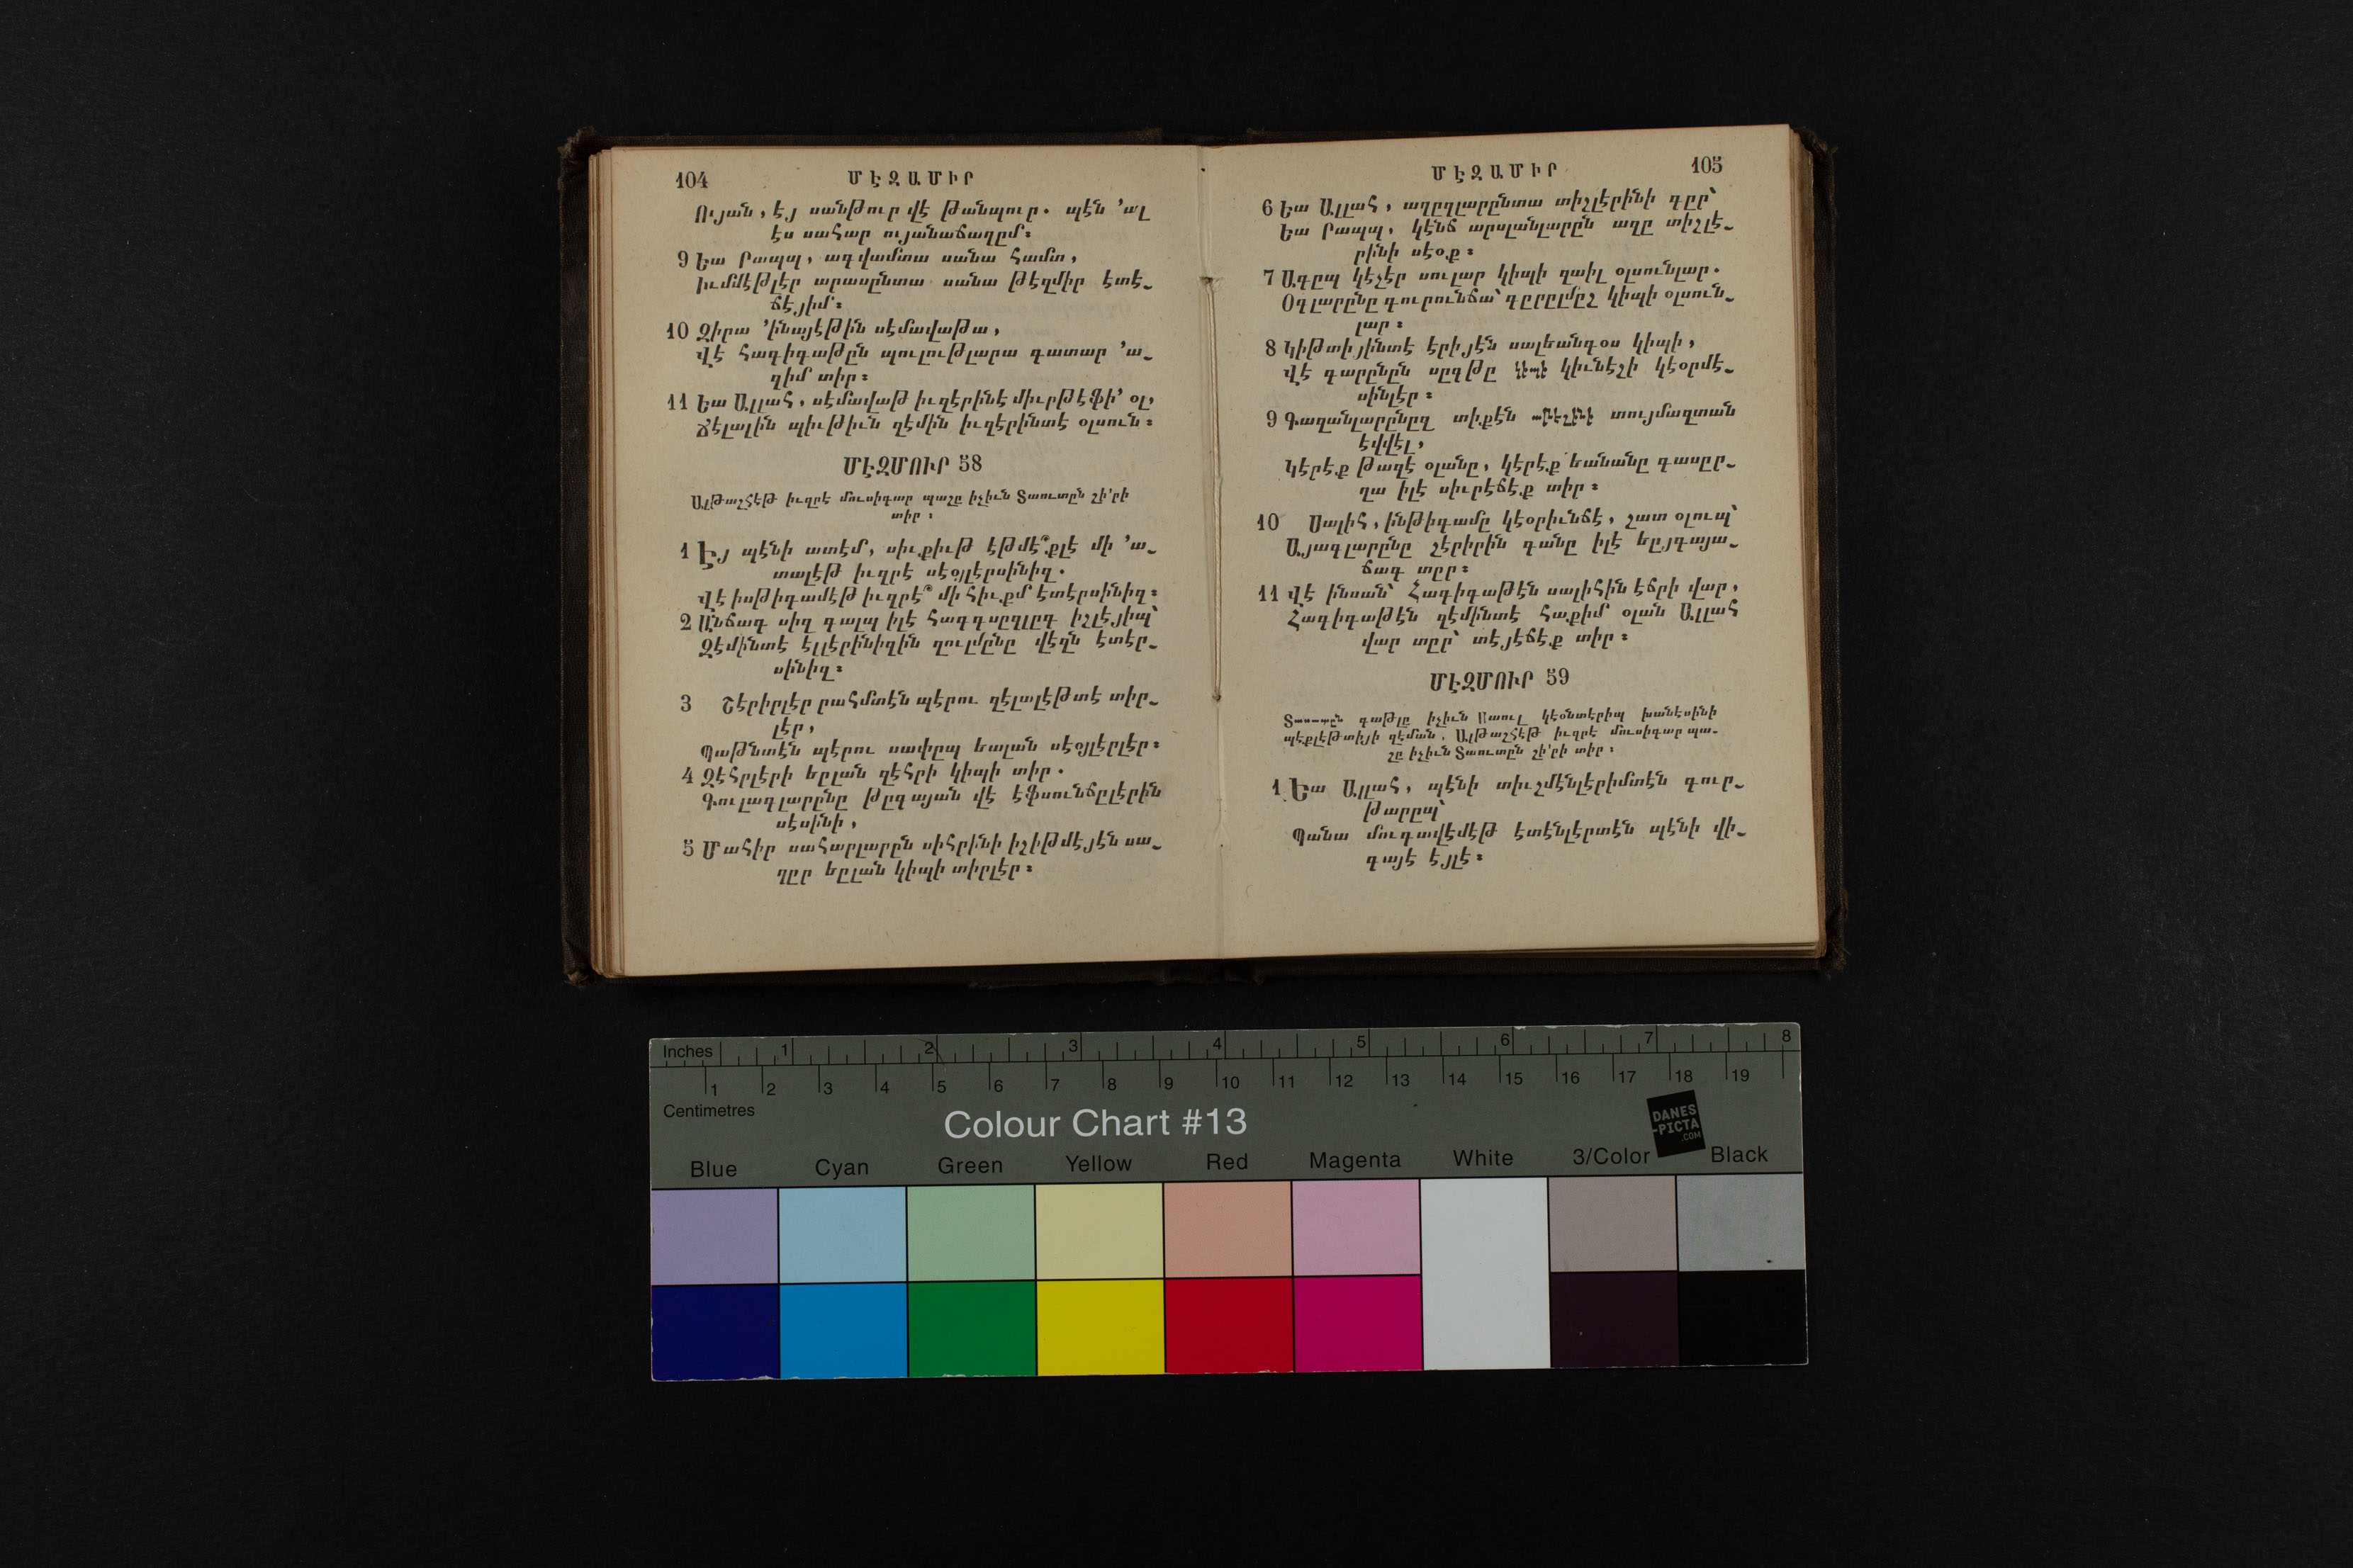 104 ՄԷԶԱՄԻՐ
Ույան, էյ սանթուր վէ թանպուր. պէն ՚ալ
էս սահար ույանաճաղըմ։
9 Եա Րապպ, ագվամտա սանա համտ,
Իւմմէթլէր արասընտա սանա թէզմիր էտէ֊
ճէյիմ։
10 Զիրա ՚ինայէթին սէմավաթա,
Վէ հագիգաթըն պուլութլարա գատար ՚ա֊
զիմ տիր։
11 Եա Ալլահ, սէմավաթ իւզէրինէ միւրթէֆի՚ օլ,
Ճէլալին պիւթիւն զէմին իւզէրինտէ օլսուն։
ՄԷԶՄՈՒՐ 58
Ալթաշհէթ իւզրէ մուսիգար պաշը իչիւն Տաուտըն շի՚րի
տիր։
1 Էյ պէնի ատէմ, սիւքիւթ էթմէ՞քլէ մի ՚ա֊
տալէթ իւզրէ սէօյլէրսինիզ.
Վէ իսթիգամէթ իւզրէ՞ մի հիւքմ էտէրսինիզ։
2 Անճագ սիզ գալպ իլէ հագգսըզլըգ իշլէյիպ՝
Զէմինտէ էլլէրինիզին զուլմընը վէզն էտէր֊
սինիզ։
3 Շէրիրլէր րահմտէն պէրու զէլալէթտէ տիր֊
լէր,
Պաթնտէն պէրու սափըպ եալան սէօյլէրլէր։
4 Զէհրլէրի եըլան զէհրի կիպի տիր.
Գուլագլարընը թըգայան վէ էֆսունճըլէրին
սէսինի,
5 Մահիր սահարլարըն սիհրինի իշիթմէյէն սա֊
ղըր եըլան կիպի տիրլէր։
ՄԷԶԱՄԻՐ 105
6 Եա Ալլահ, աղըզլարընտա տիշլէրինի գըր՝
Եա Րապպ, կէնճ արսլանլարըն ազը տիշլէ֊
րինի սէօք։
7 Ագըպ կէչէր սուլար կիպի զաիլ օլսունլար.
Օգլարընը գուրունճա՝ գըրըլմըշ կիպի օլսուն֊
լար։
8 Կիթտիյինտէ էրիյէն սալեանգօս կիպի,
Վէ գարընըն սըգթը կիպի կիւնէշի կէօրմէ֊
սինլէր։
9 Գազանլարընըզ տիքէն աթէշինի տույմազտան
էվվէլ,
Կէրէք թազէ օլանը, կէրէք եանանը գասըր֊
ղա իլէ սիւրէճէք տիր։
10 Սալիհ, ինթիգամը կէօրիւնճէ, շատ օլուպ՝
Այագլարընը շէրիրին գանը իլէ եըյգայա֊
ճագ տըր։
11 Վէ ինսան՝ Հագիգաթէն սալիհին էճրի վար,
Հագիգաթէն զէմինտէ հաքիմ օլան Ալլահ
վար տըր՝ տէյէճէք տիր։
ՄԷԶՄՈՒՐ 59
Տաուտըն գաթլը իչիւն Սաուլ կէօնտէրիպ խանէսինի
պէքլէթտիյի զէման, Ալթաշհէթ իւզրէ մուսիգար պա֊
շը իչիւն Տաուտըն շի՚րի տիր։
1 Եա Ալլահ, պէնի տիւշմէնլէրիմտէն գուր֊
թարըպ՝
Պանա մուգավէմէթ էտէնլէրտէն պէնի վի֊
գայէ էյլէ։
Inches 1 2 3 4 5 6 7 8
1 2 3 4 5 6 7 8 9 10 11 12 13 14 15 16 17 18 19
Centimetres
Colour Chart #13
DANES
-PICTA
.COM
Blue Cyan Green Yellow Red Magenta White 3/Color Black